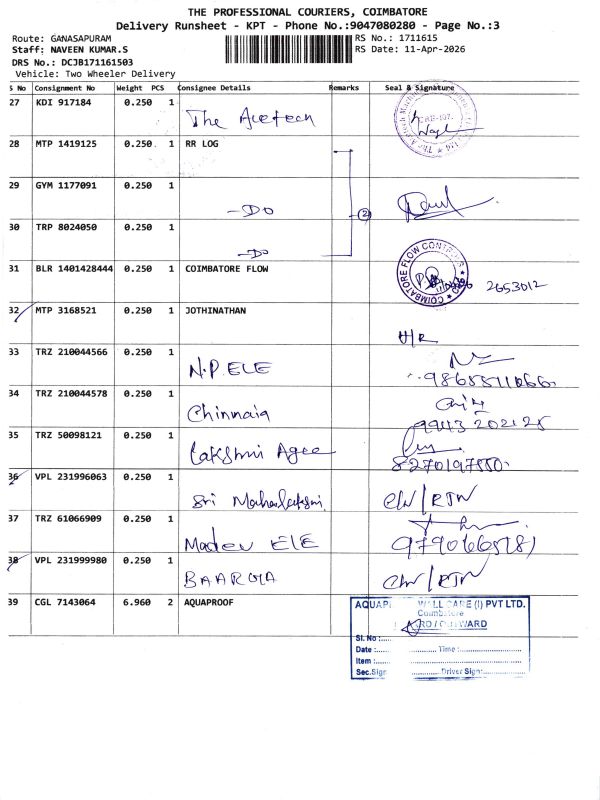 THE PROFESSIONAL COURIERS, COIMBATORE
Delivery Runsheet - KPT - Phone No.:9047080280 - Page No.:3
Route: GANASAPURAM
RS No.: 1711615
Staff: NAVEEN KUMAR.S
RS Date: 11-Apr-2026
DRS No.: DCJB171161503
Vehicle: Two Wheeler Delivery
S No Consignment No Weight PCS Consignee Details Remarks Seal & Signature
27 KDI 917184 0.250 1 The Acetech
28 MTP 1419125 0.250 1 RR LOG
29 GYM 1177091 0.250 1 -Do
30 TRP 8024050 0.250 1 -Do
2
31 BLR 1401428444 0.250 1 COIMBATORE FLOW
COIMBATORE FLOW CONTROLS
2653012
32 MTP 3168521 0.250 1 JOTHINATHAN
33 TRZ 210044566 0.250 1 N.P ELE
34 TRZ 210044578 0.250 1 Chinnaia
9943 202125
35 TRZ 50098121 0.250 1 Lakshmi Agee
36 VPL 231996063 0.250 1 Sri Mahalakshmi
37 TRZ 61066909 0.250 1 Madev ELE
38 VPL 231999980 0.250 1
39 CGL 7143064 6.960 2 AQUAPROOF
WALL CARE (I) PVT LTD.
Coimbatore
Sl. No :
Date : Time :
Item :
Sec.Sign Driver Sign: